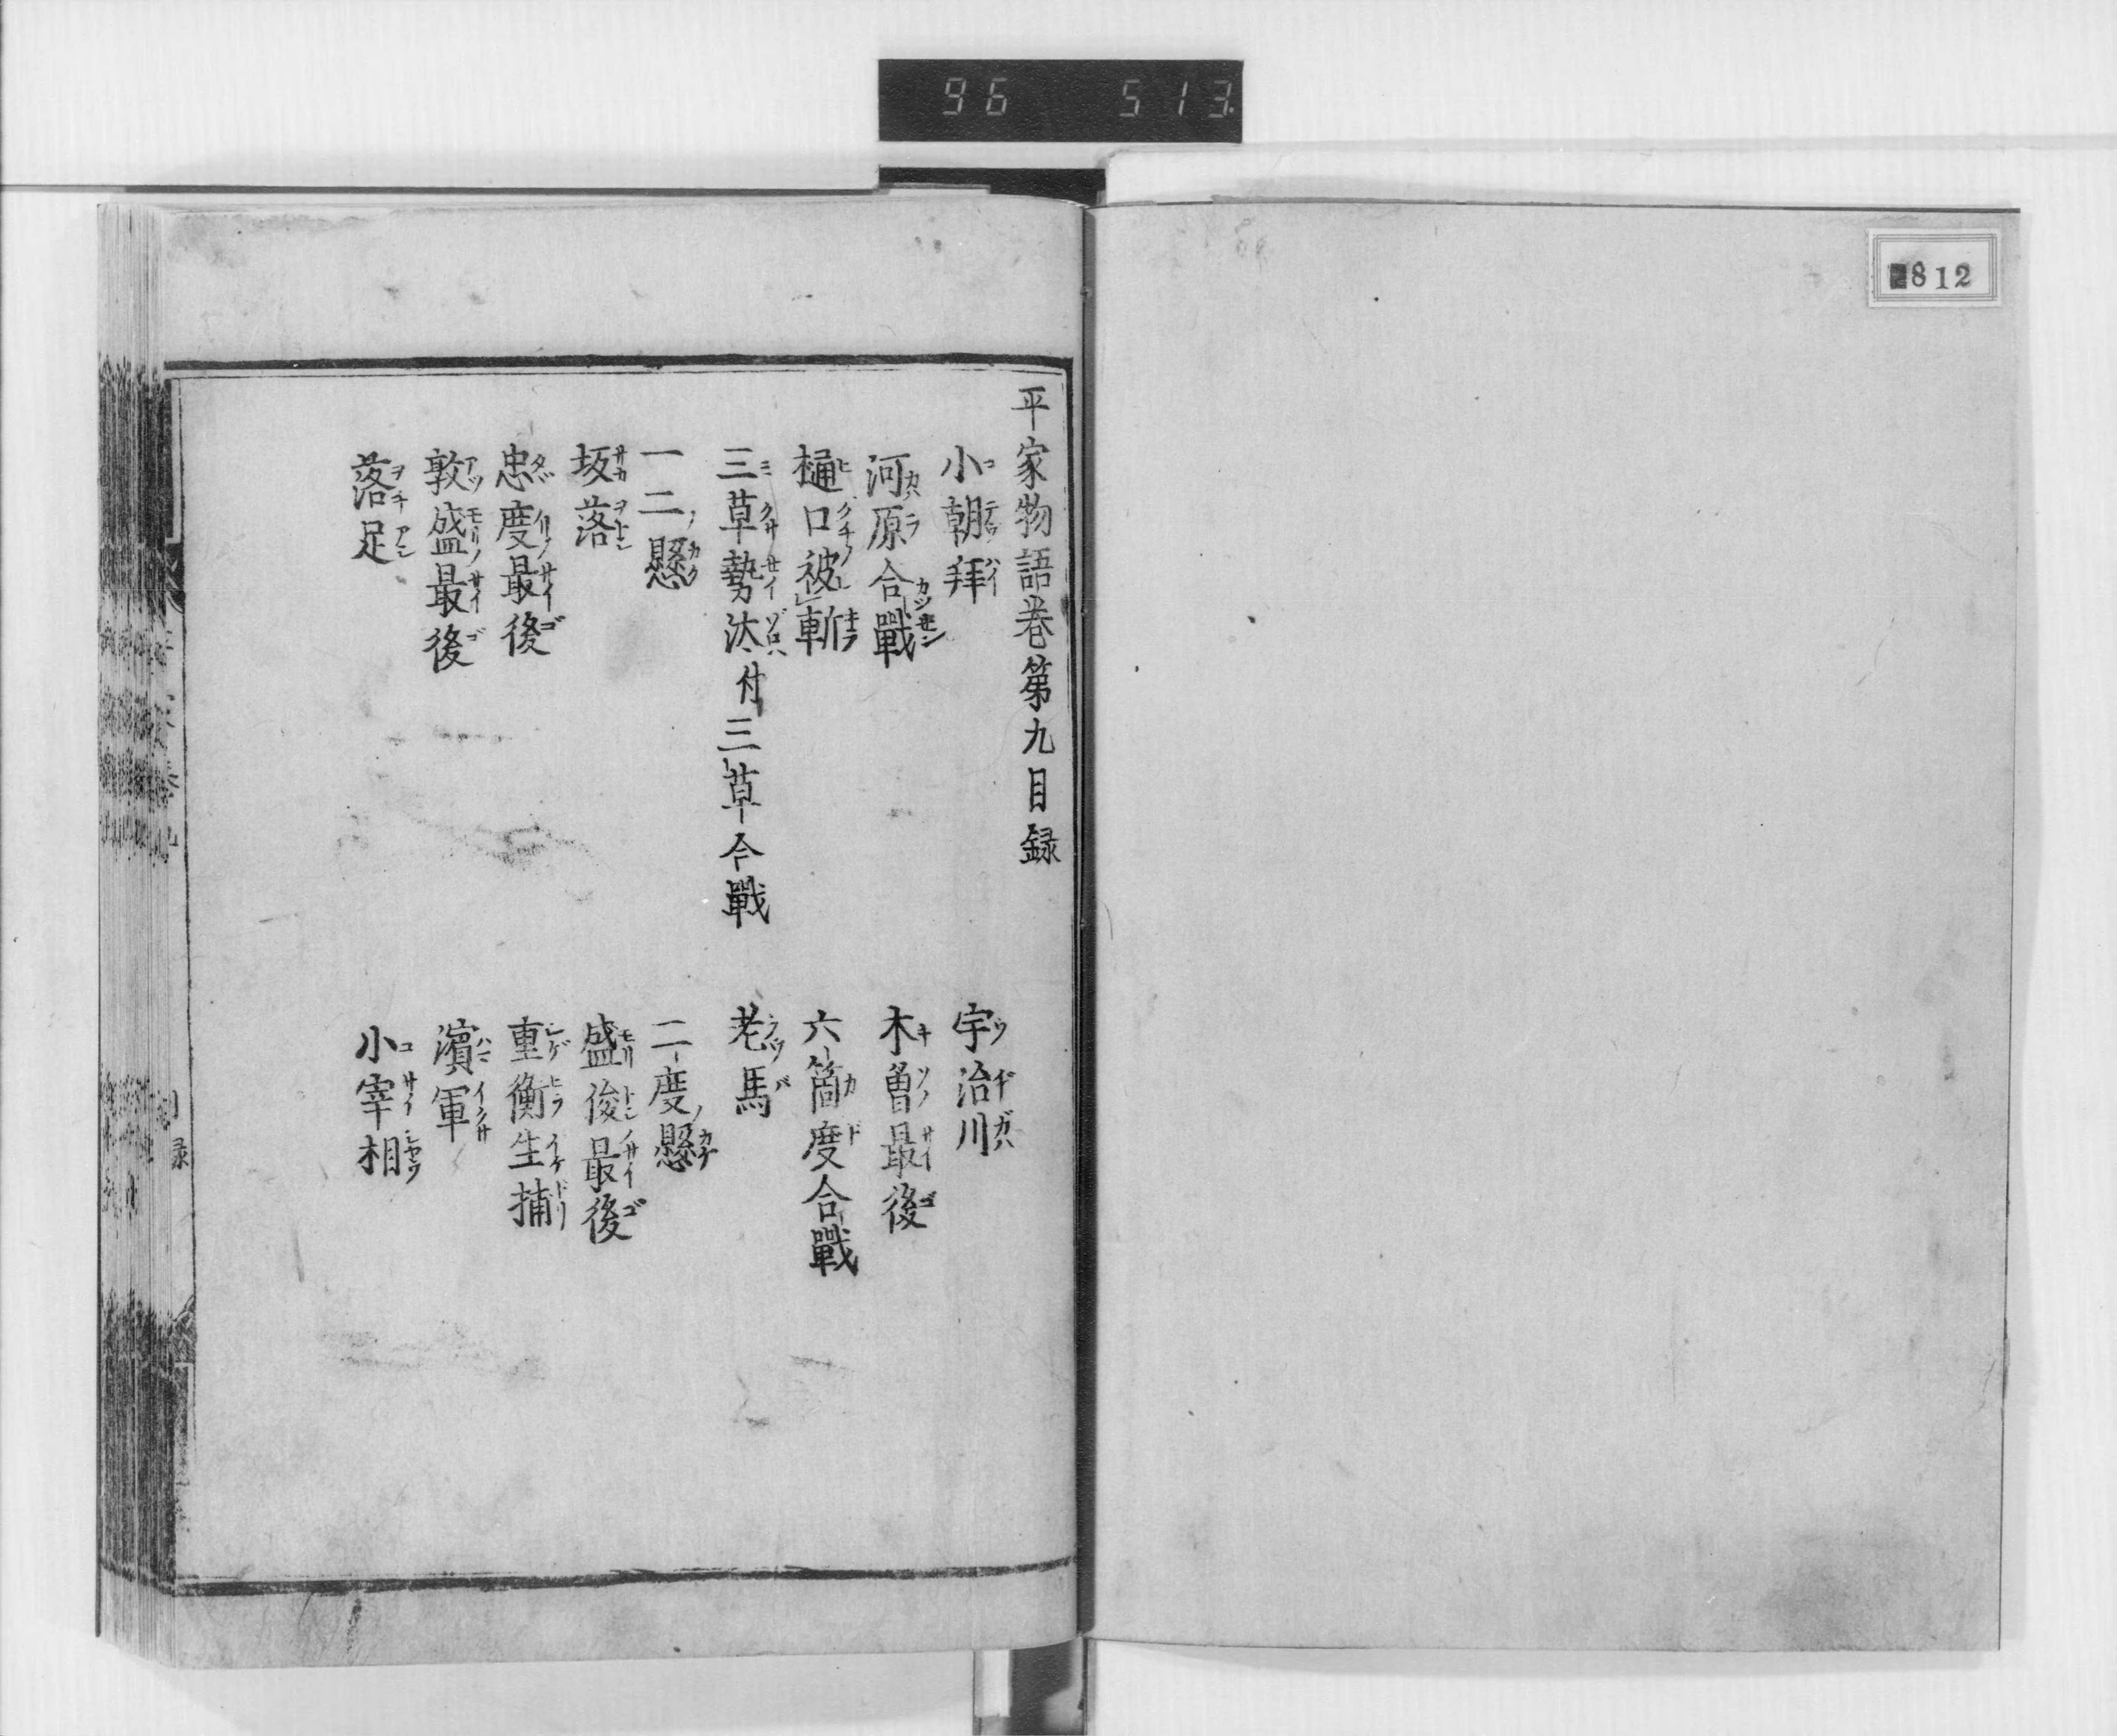 96 513
812
平家物語巻第九目録
小朝拜 宇治川
河原合戰 木曽最後
樋口被斬 六箇度合戰
三草勢汰付三草合戰 老馬
一二懸 二度懸
坂落 盛俊最後
忠度最後 重衡生捕
敦盛最後 濱軍
落足 小宰相